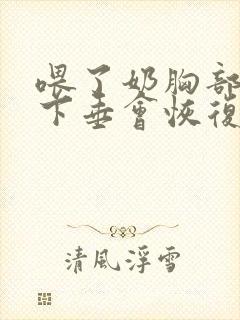 喂了奶胸部
下垂會恢復
清風浮雪